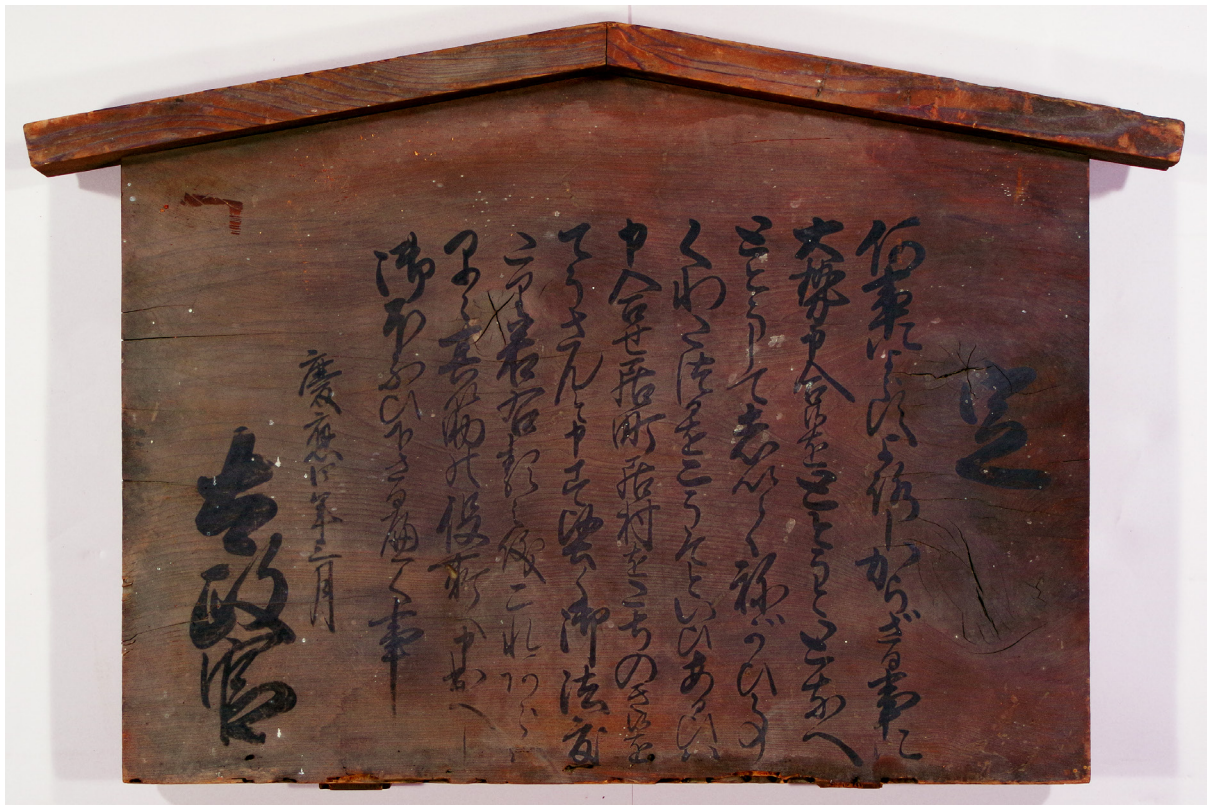 定
何事によらすよろしからざる事に
大勢申合候をととうととなへ
ととうして志ゐてねがひ事
くわたつるをこうそといひあるひハ
申合せ居町居村をたちのき候を
てうさんと申す堅く御法度
たり若右類之儀これあらハ
早々其筋の役所へ申出へし
御ほふひ下さるべく事
慶應四年三月
太政官